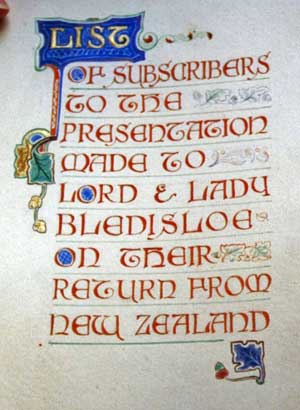 LIST
OF SUBSCRIBERS
TO THE
PRESENTATION
MADE TO
LORD & LADY
BLEDISLOE
ON THEIR
RETURN FROM
NEW ZEALAND